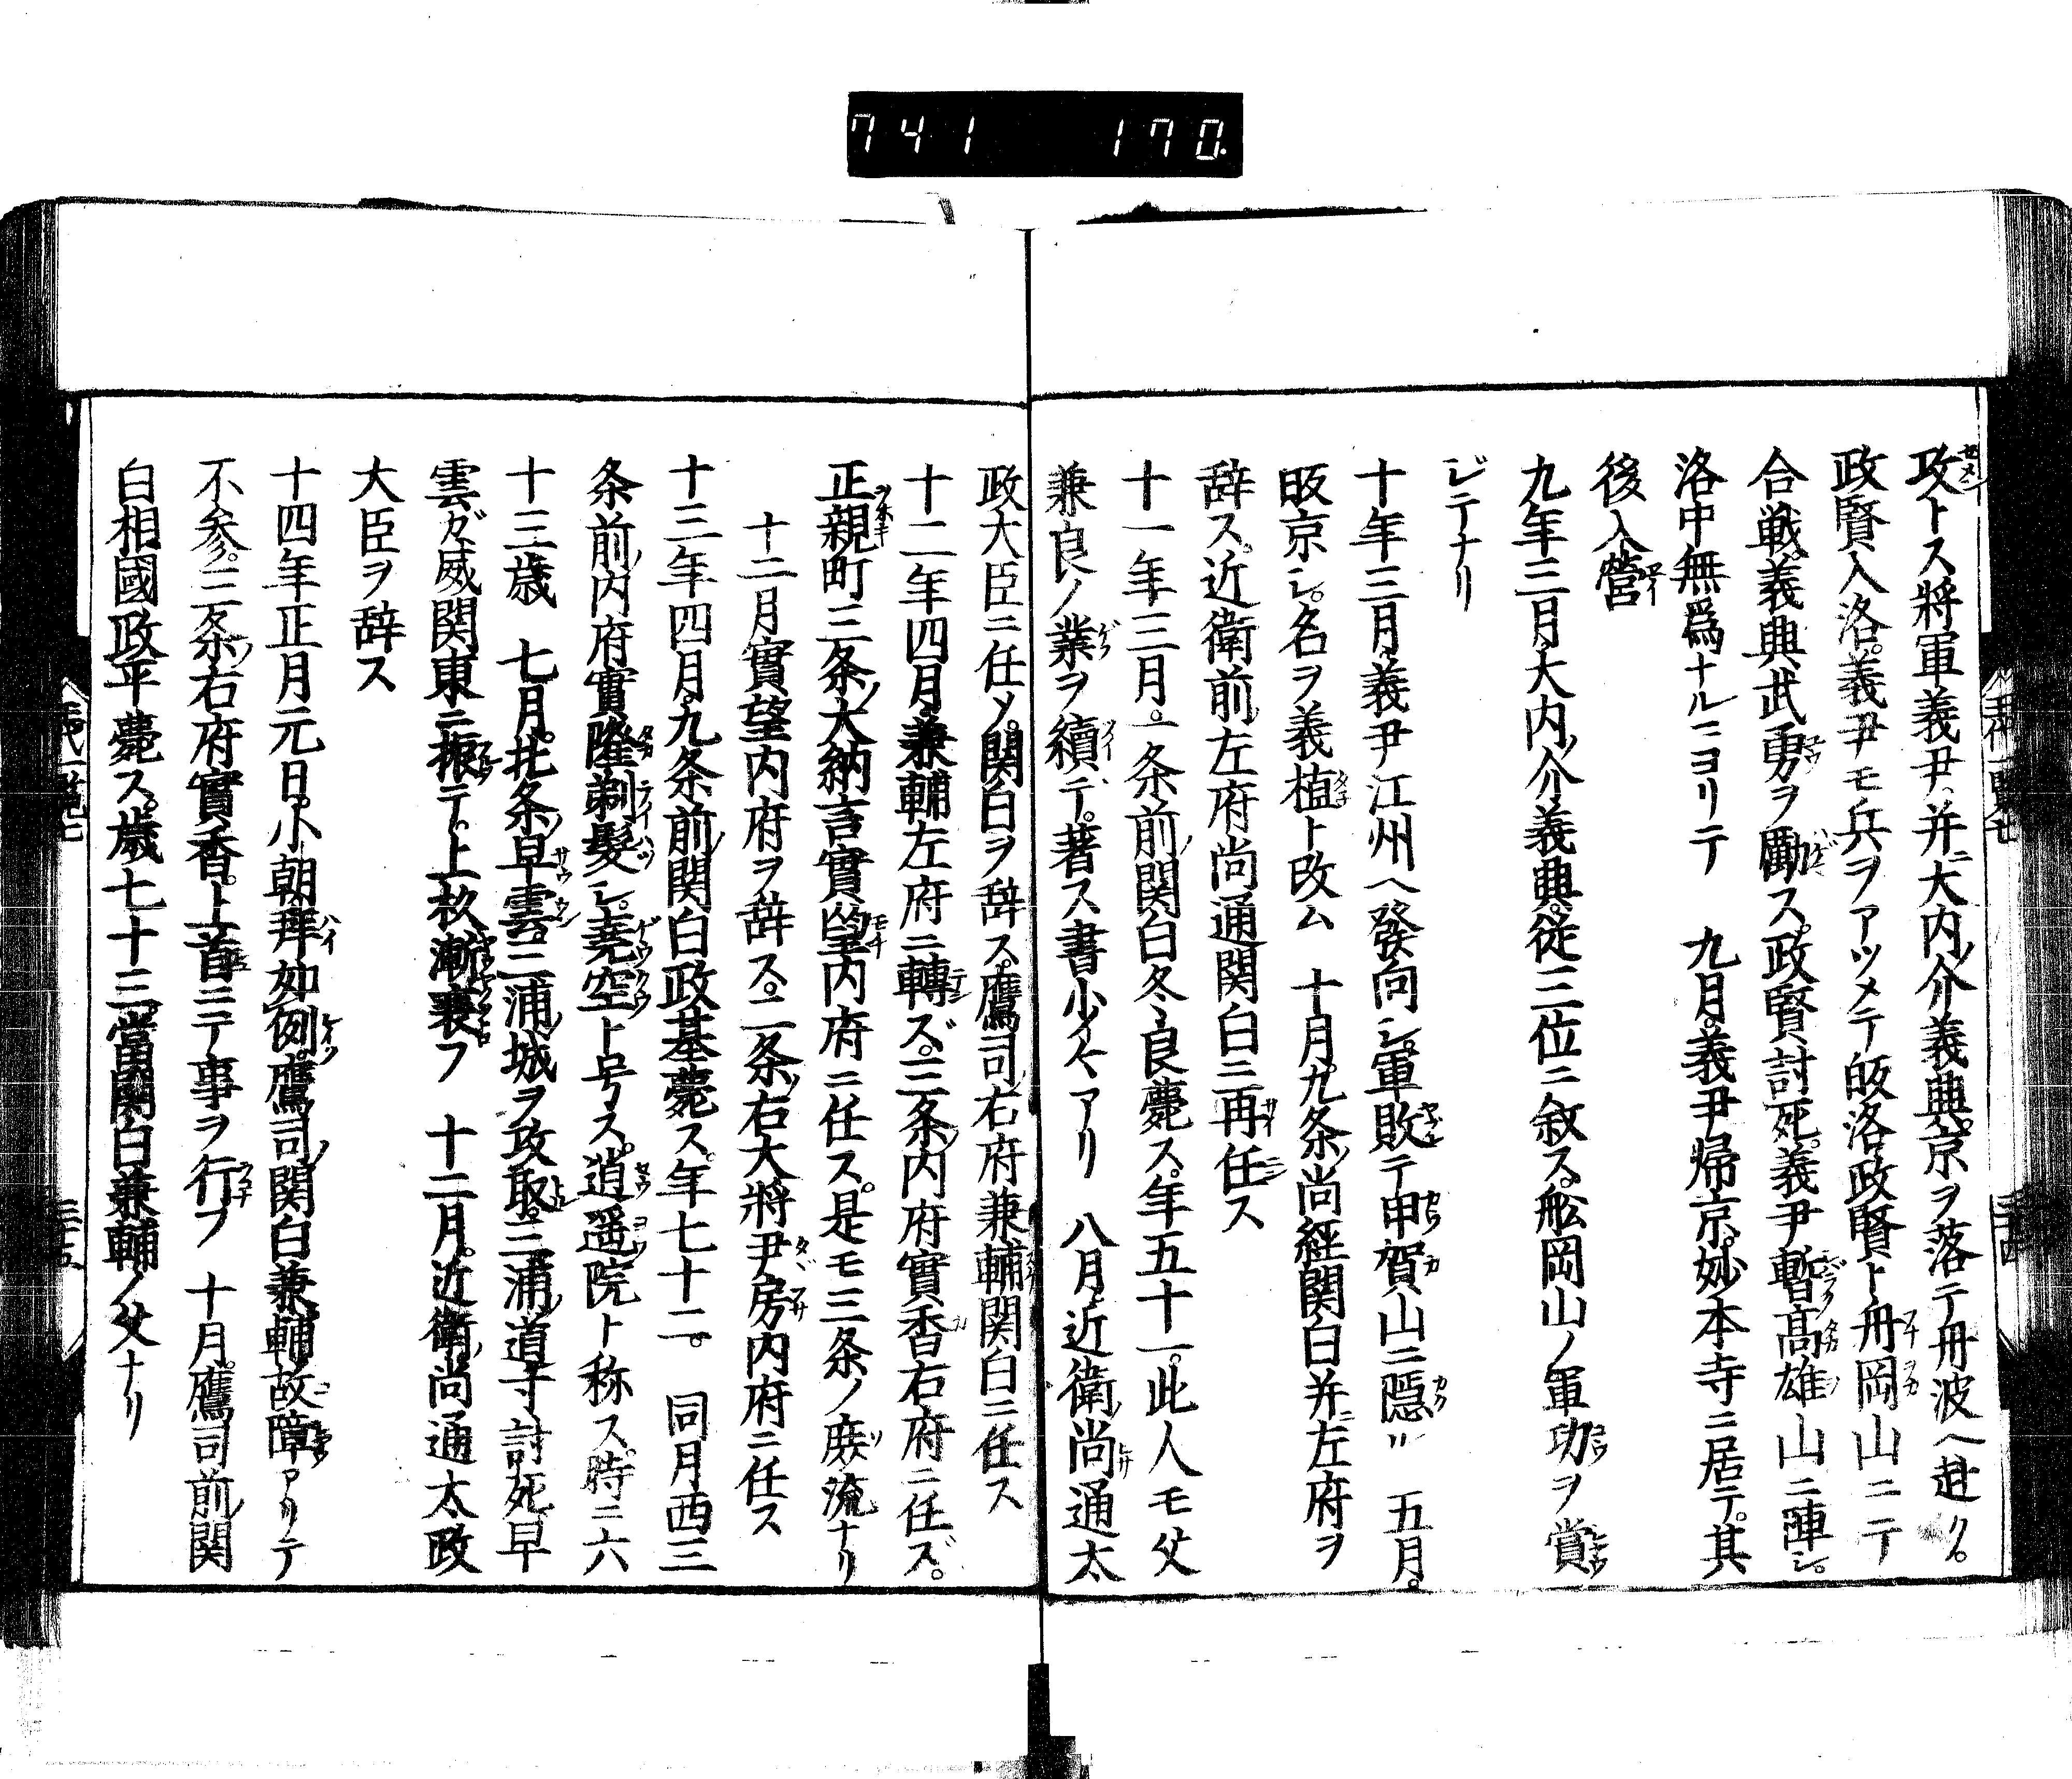 741 170.
攻トス將軍義尹并ニ大内ノ介義興京ヲ落テ丹波ヘ赴ク。
政賢入洛。義尹モ兵ヲアツメテ皈洛政賢ト舟岡山ニテ
合戰。義興武勇ヲ勵ス。政賢討死。義尹暫高雄山ニ陣シ。
洛中無爲ナルニヨリテ 九月。義尹帰京。妙本寺ニ居テ。其
後入營
九年三月大内ノ介義興。從三位ニ叙ス。舩岡山ノ軍功ヲ賞
ジテナリ
十年三月義尹江州ヘ發向シ。軍敗テ甲賀山ニ隱ル 五月。
皈京シ。名ヲ義植ト改ム 十月。九条ノ尚經関白并ニ左府ヲ
辞ス。近衛前ノ左府尚通関白ニ再任ス
十一年三月。一条前ノ関白冬良薨ス。年五十一。此人モ父
兼良ノ業ヲ續テ。著ス書少々アリ 八月。近衛ノ尚通太
政大臣ニ任メ。関白ヲ辞ス。鷹司ノ右府兼輔関白ニ任ス
十二年四月。兼輔左府ニ轉ズ。三条ノ内府實香右府ニ任ズ。
正親町三条ノ大納言實望内府ニ任ス。是モ三条ノ庶流ナリ
十二月實望内府ヲ辞ス。二条ノ右大將尹房内府ニ任ス
十三年四月。九条前ノ関白政基薨ス。年七十二。 同月西三
条前ノ内府實隆剃髪シ。堯空ト号ス。逍遥院ト称ス。時ニ六
十三歳 七月。北条ノ早雲。三浦ノ城ヲ攻取。三浦ノ道寸討死早
雲ガ威関東ニ振テ。上杦漸衰フ 十二月。近衛ノ尚通太政
大臣ヲ辞ス
十四年正月元日。小朝拜如例。鷹司ノ関白兼輔故障アリテ
不参。三条ノ右府實香。上首ニテ事ヲ行フ 十月。鷹司前ノ関
白相國政平薨ス。歳七十三。當関白兼輔ノ父ナリ